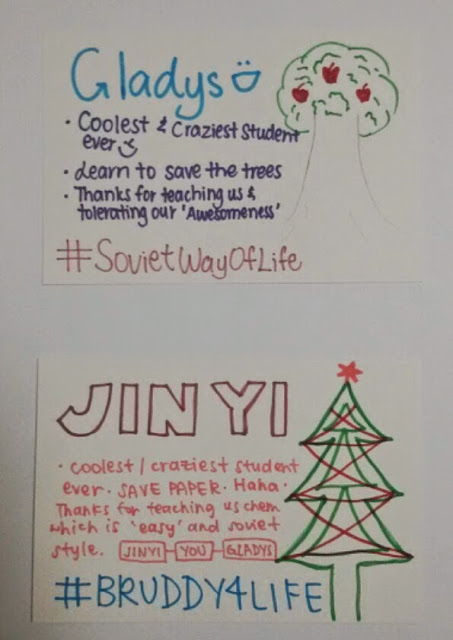 Gladys
• Coolest & Craziest Student
ever
• Learn to save the trees
• Thanks for teaching us &
tolerating our 'Awesomeness'
#SovietWayOfLife
JINYI
• coolest / craziest student
ever • SAVE PAPER • Haha •
Thanks for teaching us chem
which is 'easy' and soviet
style. JINYI YOU GLADYS
#BRUDDY4LIFE